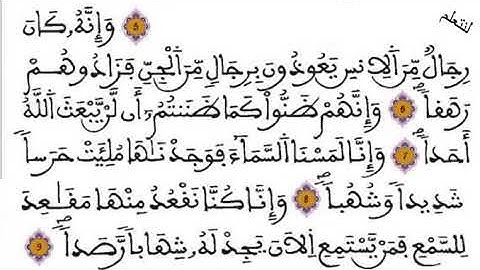 لنتعلم
5 وَإِنَّهُۥ كَانَ
رِجَالٌ مِّنَ اَلِانسِ يَعُوذُونَ بِرِجَالٍ مِّنَ اَلْجِنِّ فَزَادُوهُمْ
رَهَقاًۖ 6 وَإِنَّهُمْ ظَنُّواْ كَمَا ظَنَنتُمُۥٓ أَن لَّنْ يَّبْعَثَ اَللَّهُ
أَحَداًۖ 7 وَإِنَّا لَمَسْنَا اَلسَّمَآءَ فَوَجَدْنَٰهَا مُلِئَتْ حَرَساً
شَدِيداً وَشُهُباًۖ 8 وَإِنَّا كُنَّا نَقْعُدُ مِنْهَا مَقَٰعِدَ
لِلسَّمْعِ فَمَنْ يَّسْتَمِعِ اِلَانَ يَجِدْ لَهُۥ شِهَاباً رَّصَداًۖ 9